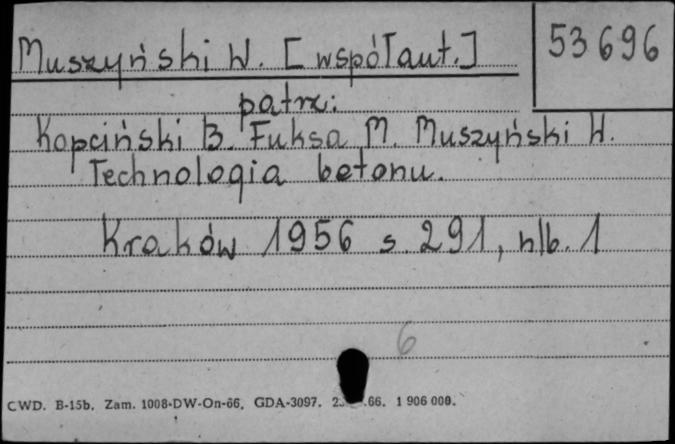 Muszyński W. [współaut.]
53696
patrz:
Kopciński B. Fuksa M. Muszyński W.
Technologia betonu.
Kraków 1956 s. 291, nlb. 1
6
CWD. B-15b. Zam. 1008-DW-On-66. GDA-3097. .66. 1 906 000.